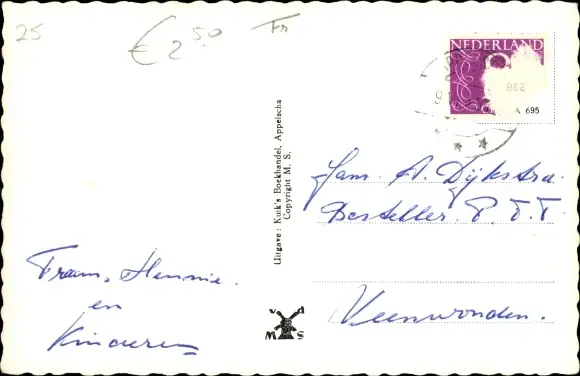 25
€ 2 50
Fr
NEDERLAND
962
A 695
Uitgave: Kuik's Boekhandel, Appelscha
Copyright M. S.
Fam. A. Dijkstra.
Besteller. P.T.T.
Veenwouden.
Fram, Hennie.
en
Kinderen
v d
M S